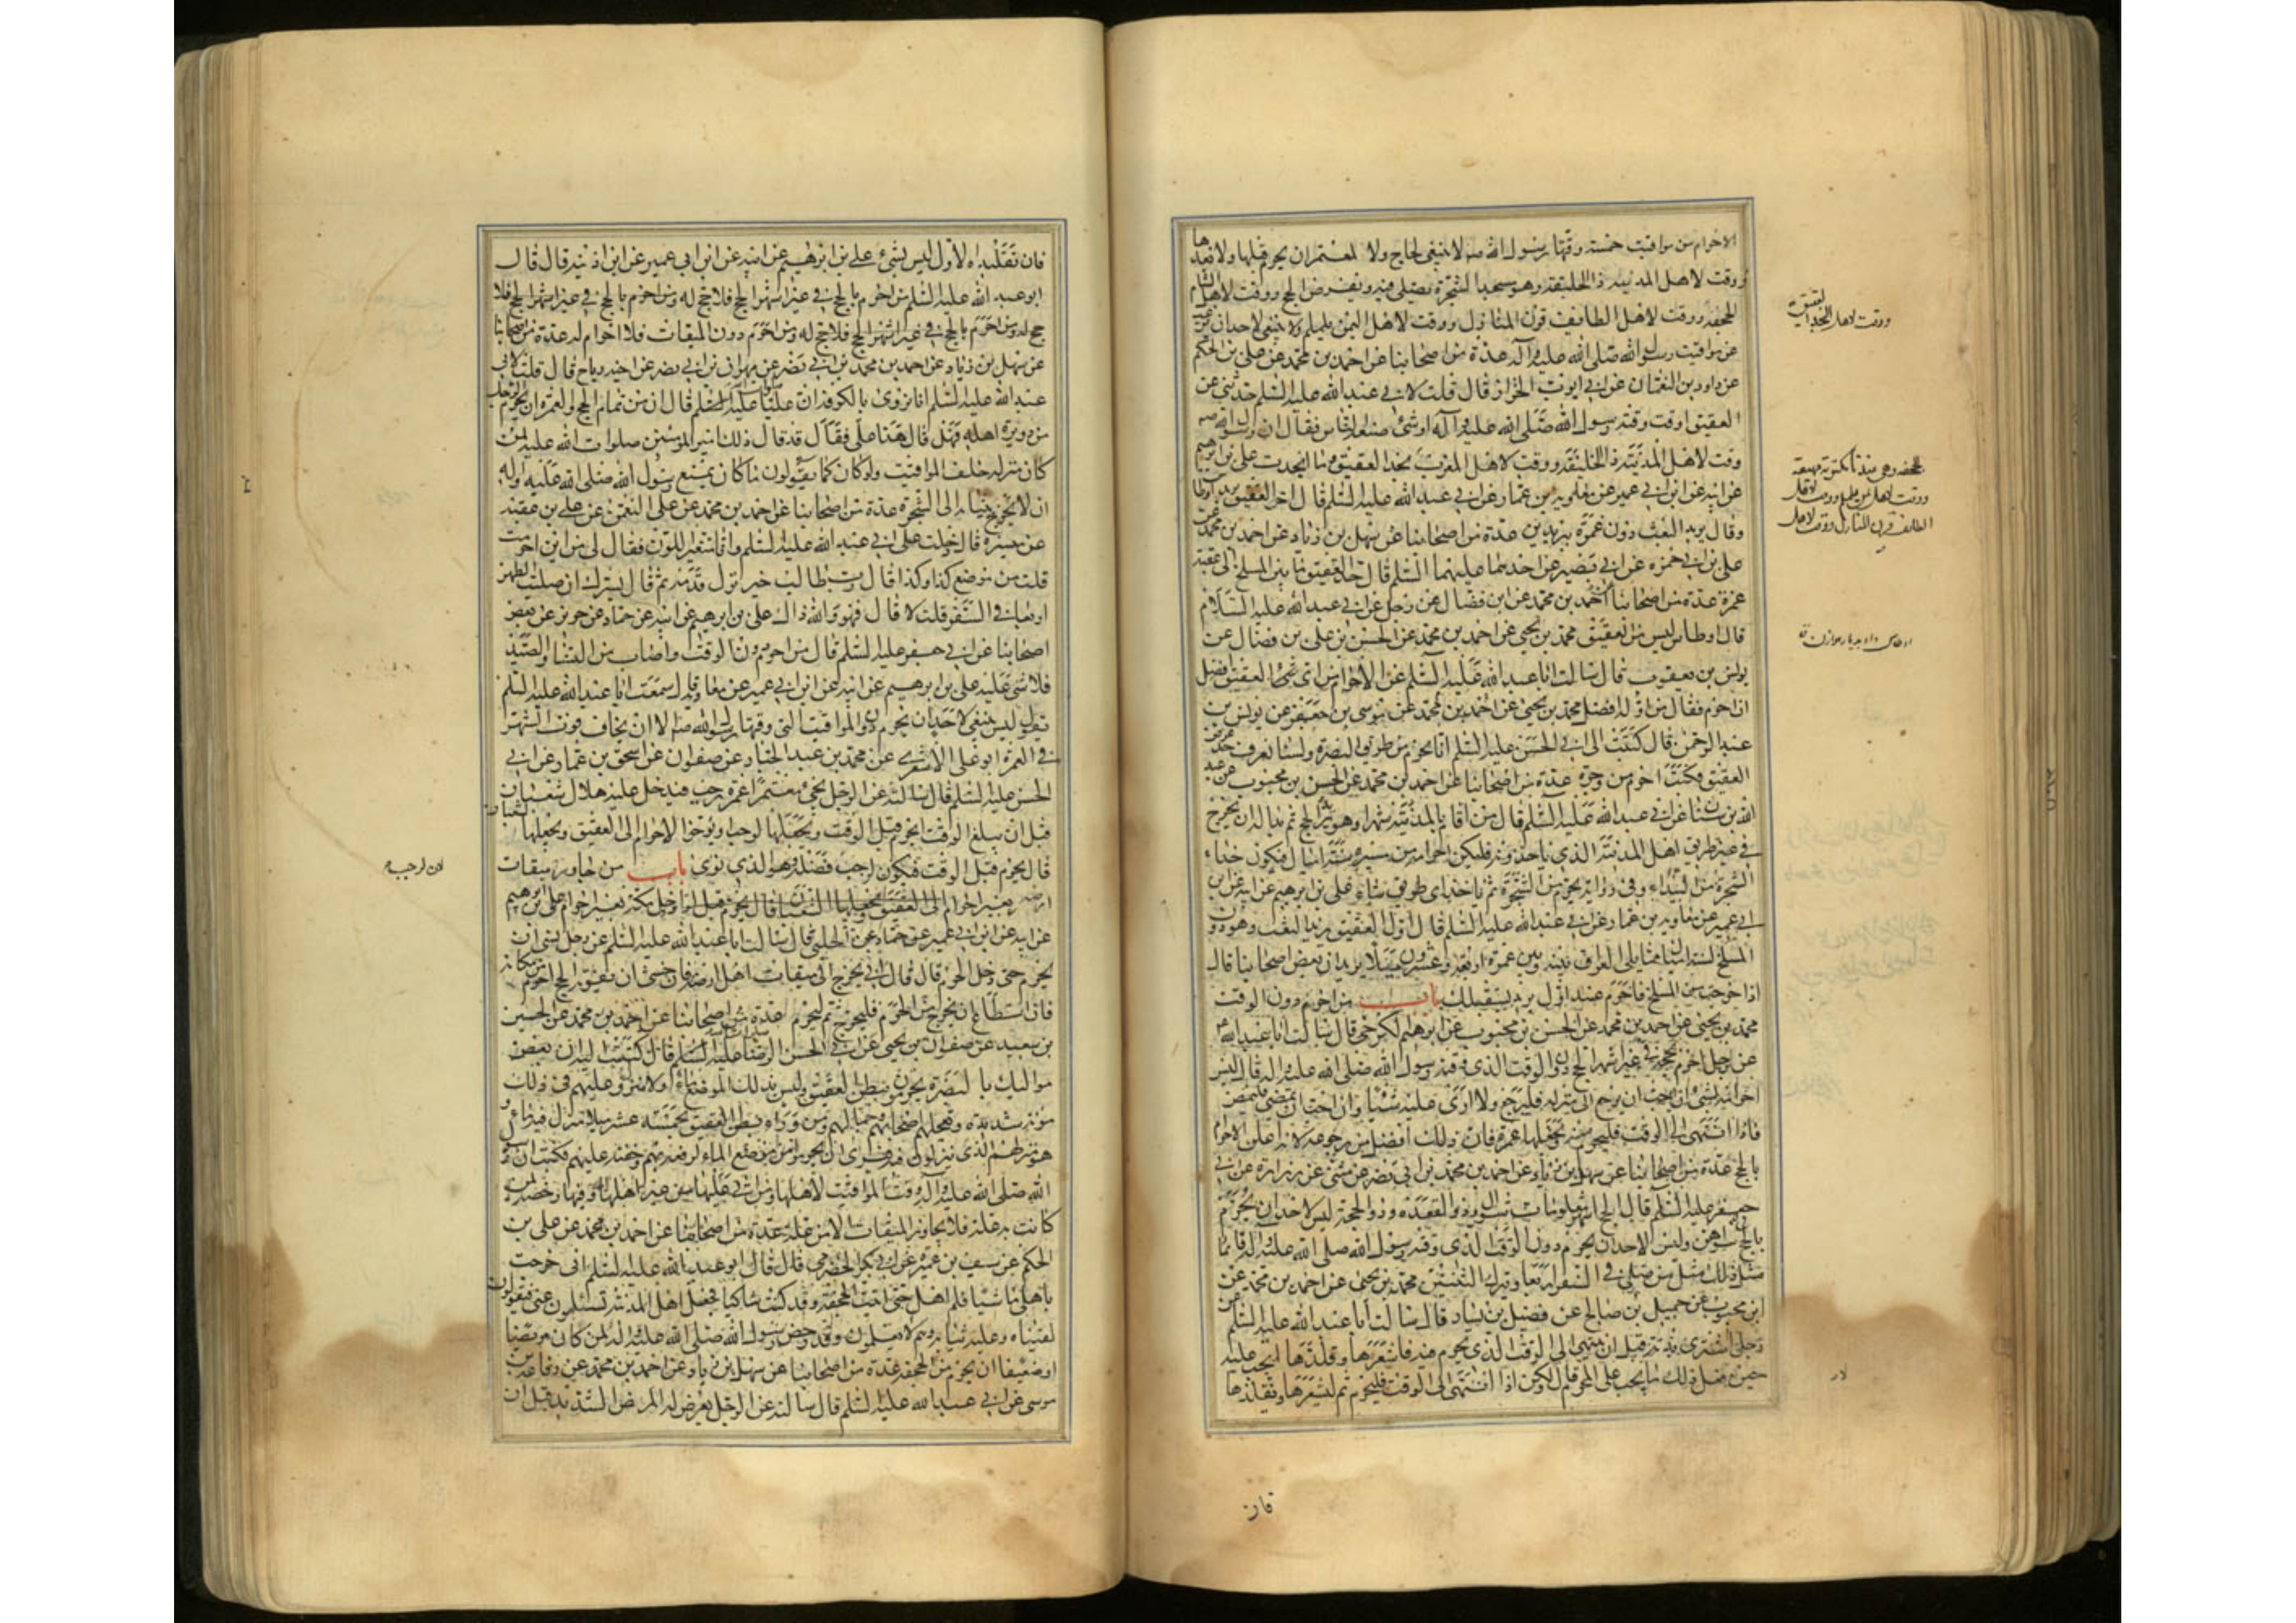 الاحرام من مواقيت خمسة وقتها رسول الله صه لا ينبغى لحاج ولا لمعتمر ان يحرم قبلها ولا بعدها
ووقت لاهل المدينه ذا الحليفة وهو مسجد الشجرة يصلى فيه ويفرض الحج ووقت لاهل الشام
الجحفة ووقت لاهل الطايف قرن المنازل ووقت لاهل اليمن يلملم ولا ينبغى لاحد ان يرغب
عن مواقيت رسول الله صلى الله عليه وآله عدة من اصحابنا عن احمد بن محمد عن على بن الحكم
عن داود بن النعمان عن ابى ايوب الخزاز قال قلت لابى عبد الله عليه السلم حدثنى عن
العقيق اوقت وقته رسول الله صلى الله عليه وآله او شئ صنعه الناس فقال ان رسول الله صه
وقت لاهل المدينة ذا الحليفة ووقت لاهل المغرب الجحفة
عن ابيه عن ابن ابى عمير عن معاوية بن عمار عن ابى عبد الله عليه السلم قال اخر العقيق بريد اوطاس
وقال بريد البعث دون غمرة ببريدين عدة من اصحابنا عن سهل بن زياد عن احمد بن محمد عن
على بن ابى حمزه عن ابى بصير عن احدهما عليهما السلم قال حد العقيق ما بين المسلخ الى عقبة
غمرة عدة من اصحابنا عن احمد بن محمد عن ابن فضال عن رجل عن ابى عبد الله عليه السلام
قال اوطاس ليس من العقيق محمد بن يحيى عن احمد بن محمد عن الحسن بن على بن فضال عن
يونس بن يعقوب قال سالت ابا عبد الله عليه السلم عن الاحرام من اى العقيق افضل
ان احرم فقال من اوله افضل محمد بن يحيى عن احمد بن محمد عن موسى بن جعفر عن يونس بن
عبد الرحمن قال كتبت الى ابى الحسن عليه السلم انا نحرم من طريق البصرة ولسنا نعرف حد عرض
العقيق فكتب احرم من وجرة عدة من اصحابنا عن احمد بن محمد عن الحسن بن محبوب عن عبد
الله بن سنان عن ابى عبد الله عليه السلم قال من اقام بالمدينة شهرا وهو يريد الحج ثم بدا له ان يخرج
فى غير طريق اهل المدينة الذى ياخذونه فليكن احرامه من مسيرة ستة اميال فيكون حذاء
الشجرة من البيداء وفى رواية يحرم من الشجرة ثم ياخذ اى طريق شاء على بن ابرهيم عن ابيه عن ابن
ابى عمير عن معاويه بن عمار عن ابى عبد الله عليه السلم قال اول العقيق بريد البعث وهو دون
المسلخ بستة اميال مما يلى العراق وبينه وبين غمرة اربعة وعشرون ميلا بريدان بعض اصحابنا قال
اذا خرجت من المسلخ فاحرم عند اول بريد يستقبلك باب من احرم دون الوقت
محمد بن يحيى عن احمد بن محمد عن الحسن بن محبوب عن ابرهيم الكرخى قال سالت ابا عبد الله
عن رجل احرم بحجة فى غير اشهر الحج دون الوقت الذى وقته رسول الله صلى الله عليه واله قال ليس
احرامه بشئ ان احب ان يرجع الى منزله فليرجع ولا ارى عليه شيئا وان احب ان يمضى فليمض
فاذا انتهى الى الوقت فليحرم منه ويجعلها عمرة فان ذلك افضل من رجوعه لانه اعلن الاحرام
بالحج عدة من اصحابنا عن سهل بن زياد عن احمد بن محمد بن ابى نصر عن مثنى عن زرارة عن ابى
جعفر عليه السلم قال الحج اشهر معلومات شوال وذو القعدة وذو الحجة ليس لاحد ان يحرم
بالحج فى سواهن وليس لاحد ان يحرم دون الوقت الذى وقته رسول الله صلى الله عليه واله فانما
مثل ذلك مثل من صلى فى السفر اربعا وترك الثنتين محمد بن يحيى عن احمد بن محمد عن
ابن محبوب عن جميل بن صالح عن فضيل بن يسار قال سالت ابا عبد الله عليه السلم عن
رجل اشترى بدنة قبل ان ينتهى الى الوقت الذى يحرم فيه فاشعرها وقلدها ايجب عليه
حين فعل ذلك ما يجب على المحرم قال لا ولكن اذا انتهى الى الوقت فليحرم ثم ليشعرها ويقلدها
فان
فان تقليده الاول ليس بشئ على بن ابرهيم عن ابيه عن ابن ابى عمير عن ابن اذينه قال قال
ابو عبد الله عليه السلم من احرم بالحج فى غير اشهر الحج فلا حج له ومن احرم بالحج فى غير اشهر الحج فلا
حج له ومن احرم بالحج فى غير اشهر الحج فلا حج له ومن احرم دون الميقات فلا احرام له عدة من اصحابنا
عن سهل بن زياد عن احمد بن محمد بن ابى نصر عن مهران بن ابى نصر عن اخيه رباح قال قلت لابى
عبد الله عليه السلم انا نروى بالكوفة ان عليا عليه السلم قال ان من تمام الحج والعمرة ان يحرم الرجل
من دويرة اهله فهل قال هذا على فقال قد قال ذلك امير المومنين صلوات الله عليه لمن
كان منزله خلف المواقيت ولو كان كما يقولون ما كان يمتنع رسول الله صلى الله عليه واله
ان لا يخرج بثيابه الى الشجرة عدة من اصحابنا عن احمد بن محمد عن على النعمن عن على بن عقبة
عن ميسرة قال دخلت على ابى عبد الله عليه السلم وانا متغير اللون فقال لى من اين احرمت
قلت من موضع كذا وكذا فقال رب طالب خير تزل قدمه ثم قال يسرك ان صليت الظهر
اربعا فى السفر قلت لا قال فهو والله ذاك على بن ابرهيم عن ابيه عن حماد عن حريز عن بعض
اصحابنا عن ابى جعفر عليه السلم قال من احرم دون الوقت واصاب من النساء والصيد
فلا شئ عليه على بن ابرهيم عن ابيه عن ابن ابى عمير عن معاوية قال سمعت ابا عبد الله عليه السلم
يقول ليس ينبغى لاحد ان يحرم دون المواقيت التى وقتها رسول الله صه الا ان يخاف فوت الشهر
فى العمرة ابو على الاشعرى عن محمد بن عبد الجبار عن صفوان عن اسحق بن عمار عن ابى
الحسن عليه السلم قال سالته عن الرجل يجئ معتمرا عمرة رجب فيدخل عليه هلال شعبان
قبل ان يبلغ الوقت ايحرم قبل الوقت ويجعلها لرجب او يوخر الاحرام الى العقيق ويجعلها لشعبان
قال يحرم قبل الوقت فيكون لرجب فضله وهو الذى نوى باب من جاوز ميقات
ارضه بغير احرام الى العقيق ويجعلها لشعبان قال يحرم قبل او دخل مكة بغير احرام على بن ابرهيم
عن ابيه عن ابن ابى عمير عن حماد عن الحلبى قال سالت ابا عبد الله عليه السلم عن رجل نسى ان
يحرم حتى دخل الحرم قال قال ابى يخرج الى ميقات اهل ارضه فان خشى ان يفوته الحج احرم من مكانه
فان استطاع ان يخرج من الحرم فليخرج ثم ليحرم عدة من اصحابنا عن احمد بن محمد عن الحسين
بن سعيد عن صفوان بن يحيى عن ابى الحسن الرضا عليه السلم قال كتبت اليه ان بعض
مواليك بالبصرة يحرمون ببطن العقيق وليس بذلك الموضع ماء ولا منزل وعليهم فى ذلك
مونة شديدة ويعجلهم اصحابهم وجمالهم ومن وراء بطن العقيق بخمسة عشر ميلا منزل فيه ماء
هو منزلهم الذى ينزلون فيه فترى ان يحرموا من موضع الماء لرفقه بهم وخفته عليهم فكتب ان رسول
الله صلى الله عليه واله وقت المواقيت لاهلها ومن اتى عليها من غير اهلها وفيها رخصة لمن
كانت به علة فلا يجاوز الميقات الا من علة عدة من اصحابنا عن احمد بن محمد عن على بن
الحكم عن سيف بن عميرة عن ابى بكر الحضرمى قال قال ابو عبد الله عليه السلم انى خرجت
باهلى ماشيا فلم اهل حتى اتيت الجحفة وقد كنت شاكيا فجعل اهل المدينة تسئلون عنى فيقولون
لقيناه وعليه ثيابه وهم لا يعلمون وقد رخص رسول الله صلى الله عليه واله لمن كان مريضا
او ضعيفا ان يحرم من الجحفة عدة من اصحابنا عن سهل بن زياد عن احمد بن محمد عن رفاعة بن
موسى عن ابى عبد الله عليه السلم قال سالته عن الرجل يعرض له المرض الشديد قبل ان